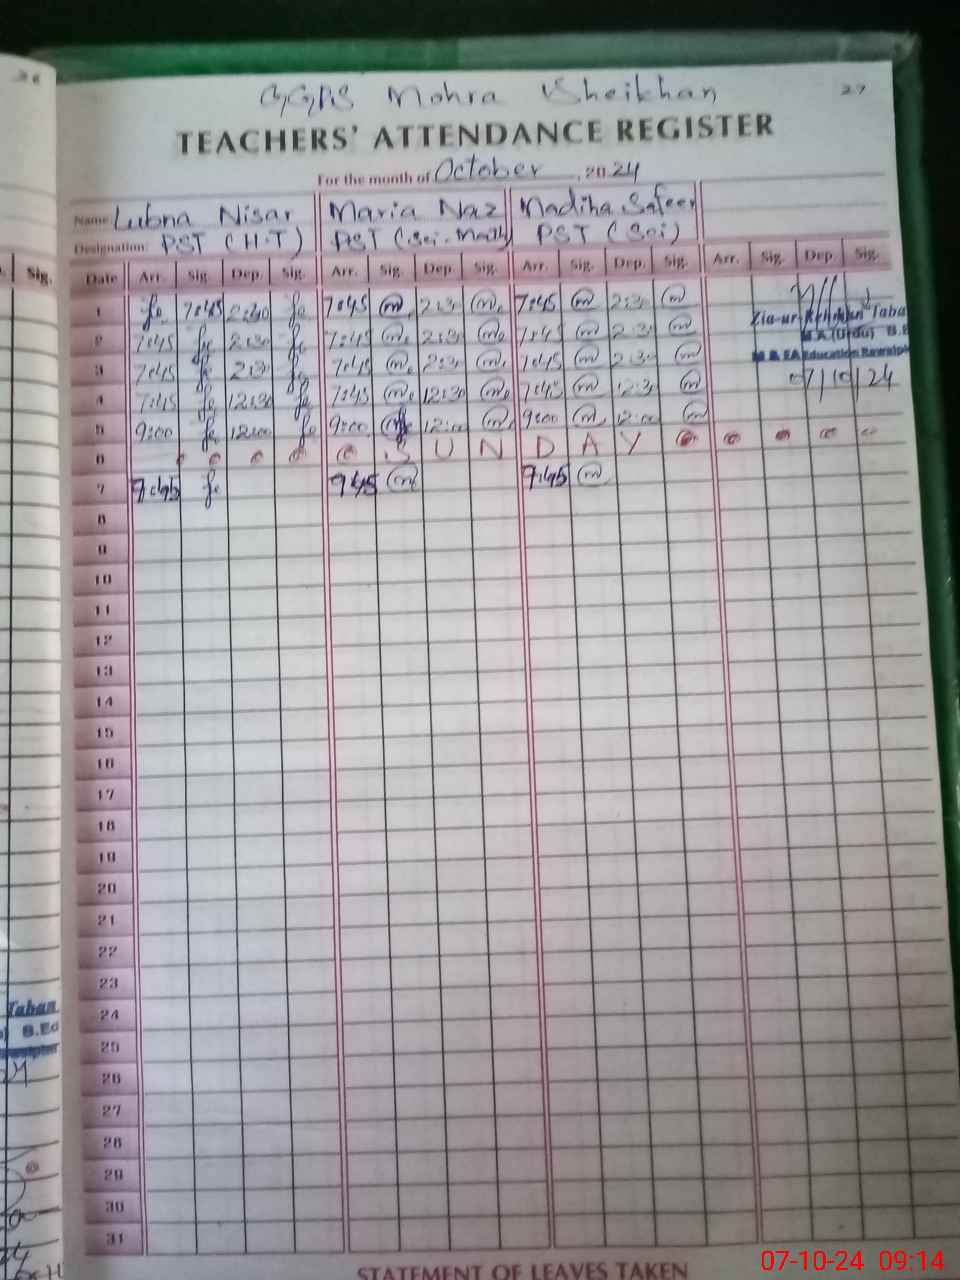 27
GGPS Mohra Sheikhan
TEACHERS' ATTENDANCE REGISTER
For the month of October, 2024
Name Lubna Nisar Maria Naz Madiha Safeer
Designation: PST (H.T) PST (Sci-Math) PST (Sci)
Sig. Date Arr. Sig. Dep. Sig. Arr. Sig. Dep. Sig. Arr. Sig. Dep. Sig. Arr. Sig. Dep. Sig.
1 7:45 2:30 7:45 2:30 7:45 2:30
Zia-ur-Rehman Taba
2 7:45 2:30 7:45 2:30 7:45 2:30
M.A.(Urdu) B.E
3 7:45 2:30 7:45 2:30 7:45 2:30
M & EA Education Rawalpi
4 7:45 12:30 7:45 12:30 7:45 12:30
07/10/24
5 9:00 12:00 9:00 12:00 9:00 12:00
6 S U N D A Y
7 7:45 7:45 7:45
8
9
10
11
12
13
14
15
16
17
18
19
20
21
22
23
24
25
26
27
28
29
30
31
Taban
B.Ed
STATEMENT OF LEAVES TAKEN
07-10-24 09:14